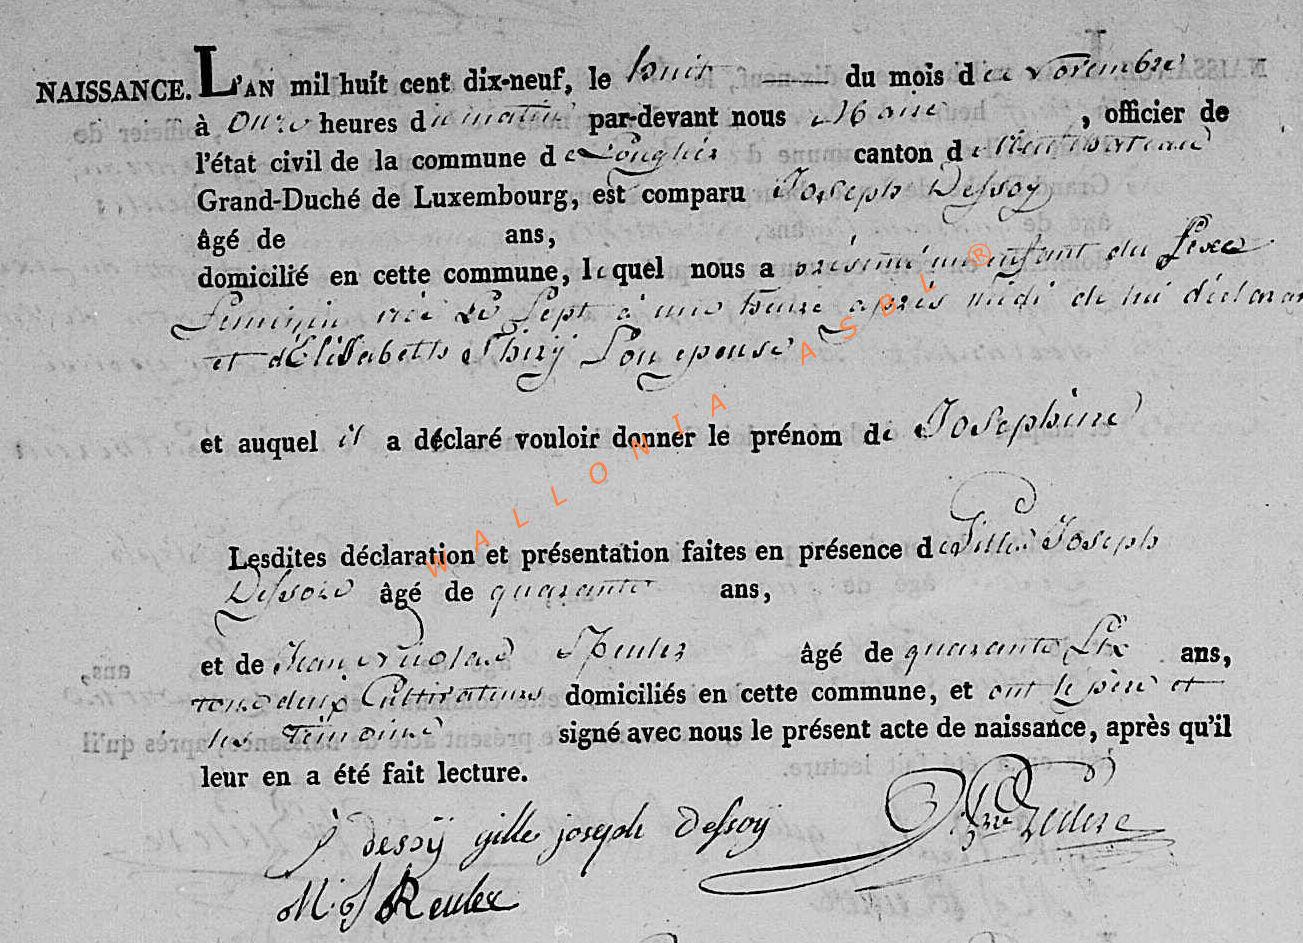 NAISSANCE. L'AN mil huit cent dix-neuf, le huit du mois de Novembre
à onze heures du matin par-devant nous , officier de
l'état civil de la commune de Longlier canton de Neufchateau
Grand-Duché de Luxembourg, est comparu Joseph Dessoy
âgé de ans,
domicilié en cette commune, lequel nous a présenté un enfant du Sexe
Feminin née Le Sept à une heure après midi de lui déclarant
et d'Elisabeth Thiry Son epouse
et auquel il a déclaré vouloir donner le prénom de Josephine
Lesdites déclaration et présentation faites en présence de Gilles Joseph
Dessoie âgé de quarante ans,
et de Jean Nicolas âgé de quarante Six ans,
tous deux Cultivateurs domiciliés en cette commune, et ont le père et
les Témoins signé avec nous le présent acte de naissance, après qu'il
leur en a été fait lecture.
j dessoÿ gille joseph Dessoy
WALLONIA ASBL ®